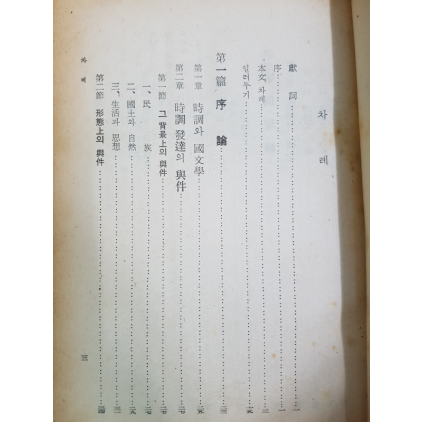 차 례
獻 詞
序
本文 차례
일러두기
第一篇 序 論
第一章 時調와 國文學
第二章 時調 發達의 與件
第一節 그 背景上의 與件
一、民 族
二、國土와 自然
三、生活과 思想
第二節 形態上의 與件
차 례
三